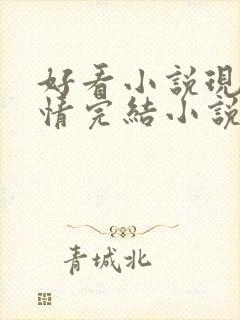 好看小說現
情完結小說
青城北